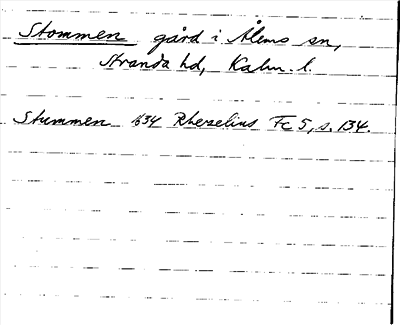 Stommen gård i Ålems sn,
Stranda hd, Kalm. l.
Stummen 1634 Rhezelius Fc 5, s. 134.